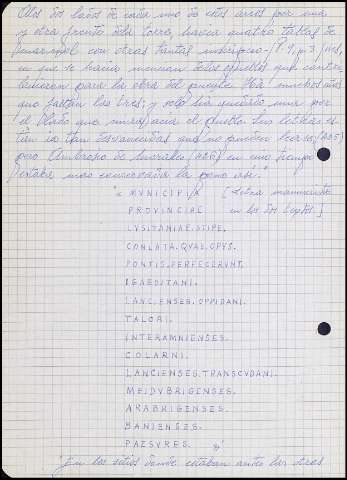 A los dos lados de cada uno de estos arcos por una
y otra frente de la torre, havia quatro tablas de
marmol con otras tantas inscripcio-
en que se hacia mencion de los pueblos que contri-
buieron para la obra del puente. Ha muchos años
que faltan las tres; y solo ha quedado una por
el lado que mira acia el pueblo. Sus letras es-
tán ia tan desvanecidas que no pueden leerse,
pero Ambrosio de Morales en cuio tiempo
estaba mas conservada la pone asi."
"« MVNICIPIA
PROVINCIAE
LVSITANIAE. STIPE.
CONLATA. QVAE. OPVS.
PONTIS. PERFECERVNT.
IGAEDITANI.
LANCIENSES. OPPIDANI.
TALORI.
INTERAMNIENSES.
COLARNI.
LANCIENSES. TRANSCVDANI.
MEIDVBRIGENSES.
ARABRIGENSES.
BANIENSES.
PAESVRES. »"
"En los sitios donde estaban antes las otras